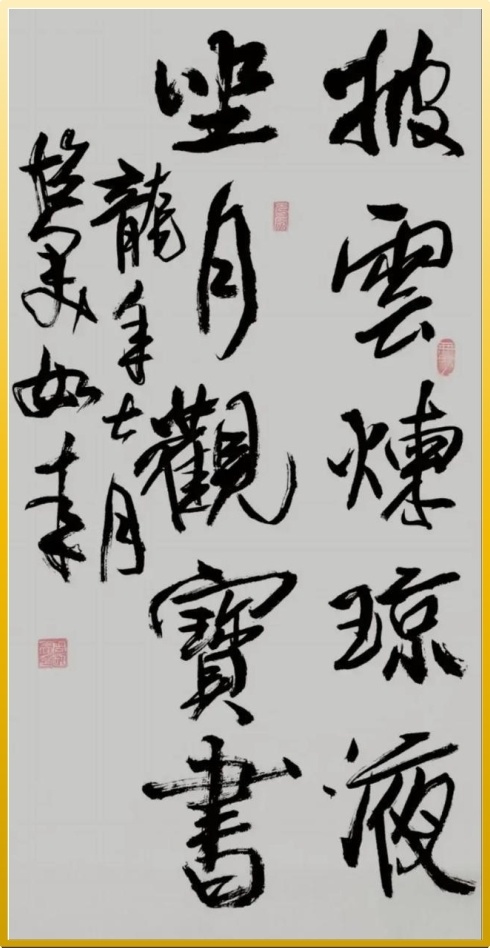 披雲煉琼液
坐月觀寶書
龍年七月
如